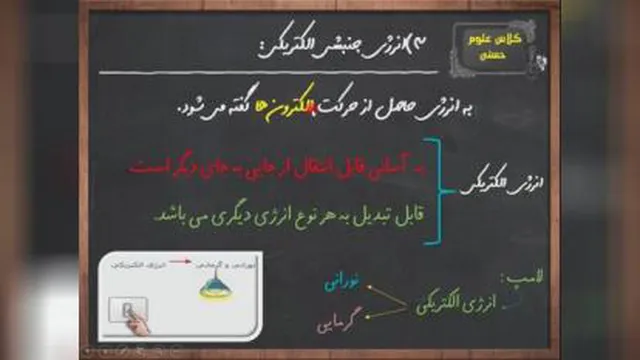 کلاس علوم
حسنی
۳) انرژی جنبشی الکتریکی:
به انرژی حاصل از حرکت الکترون ها گفته می شود.
انرژی الکتریکی
به آسانی قابل انتقال از جایی به جای دیگر است.
قابل تبدیل به هر نوع انرژی دیگری می باشد.
لامپ:
انرژی الکتریکی
نورانی
گرمایی
انرژی الکتریکی
نورانی و گرمایی